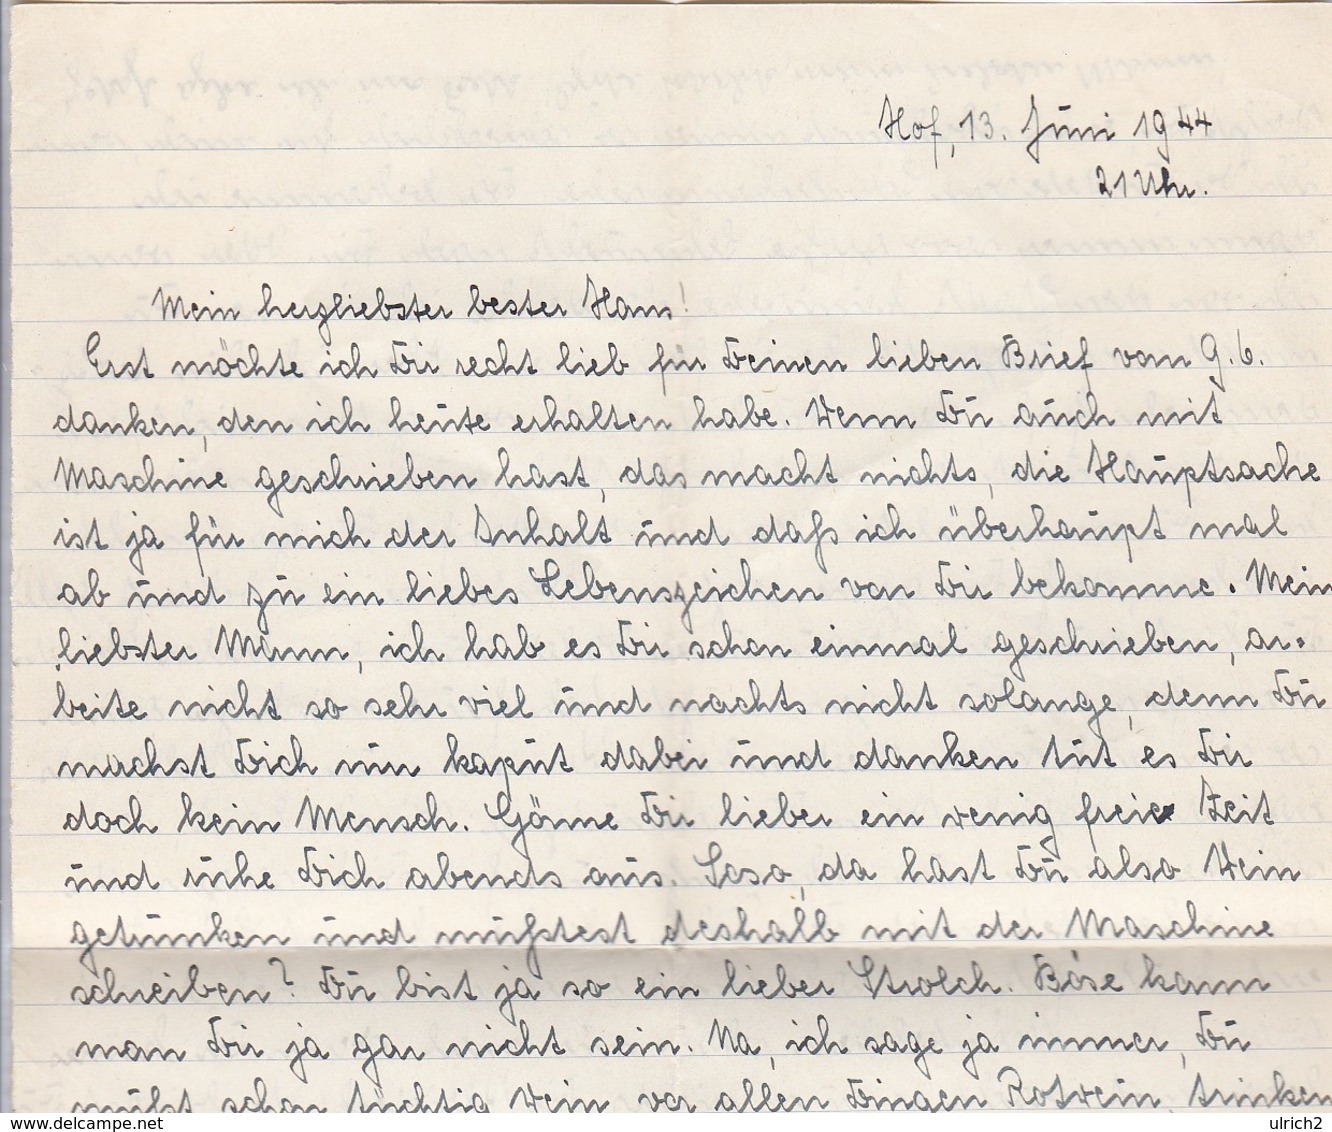 Hof, 13. Juni 1944
21 Uhr.
Mein herzliebster bester Hans!
Erst möchte ich Dir recht lieb für Deinen lieben Brief vom 9.6.
danken, den ich heute erhalten habe. Wenn Du auch mit
Maschine geschrieben hast, das macht nichts, die Hauptsache
ist ja für mich der Inhalt und daß ich überhaupt mal
ab und zu ein liebes Lebenszeichen von Dir bekomme. Mein
liebster Mann, ich hab es Dir schon einmal geschrieben, ar=
beite nicht so sehr viel und nachts nicht solange, denn Du
machst Dich nur kaput dabei und danken tut es Dir
doch kein Mensch. Gönne Dir lieber ein wenig freie Zeit
und ruhe Dich abends aus. Soso, da hast Du also Wein
getrunken und mußtest deshalb mit der Maschine
schreiben? Du bist ja so ein lieber Strolch. Böse kann
man Dir ja gar nicht sein. Na, ich sage ja immer, Du
mußt schon tüchtig Wein vor allen Dingen Rotwein, trinken
delcampe.net
ulrich2